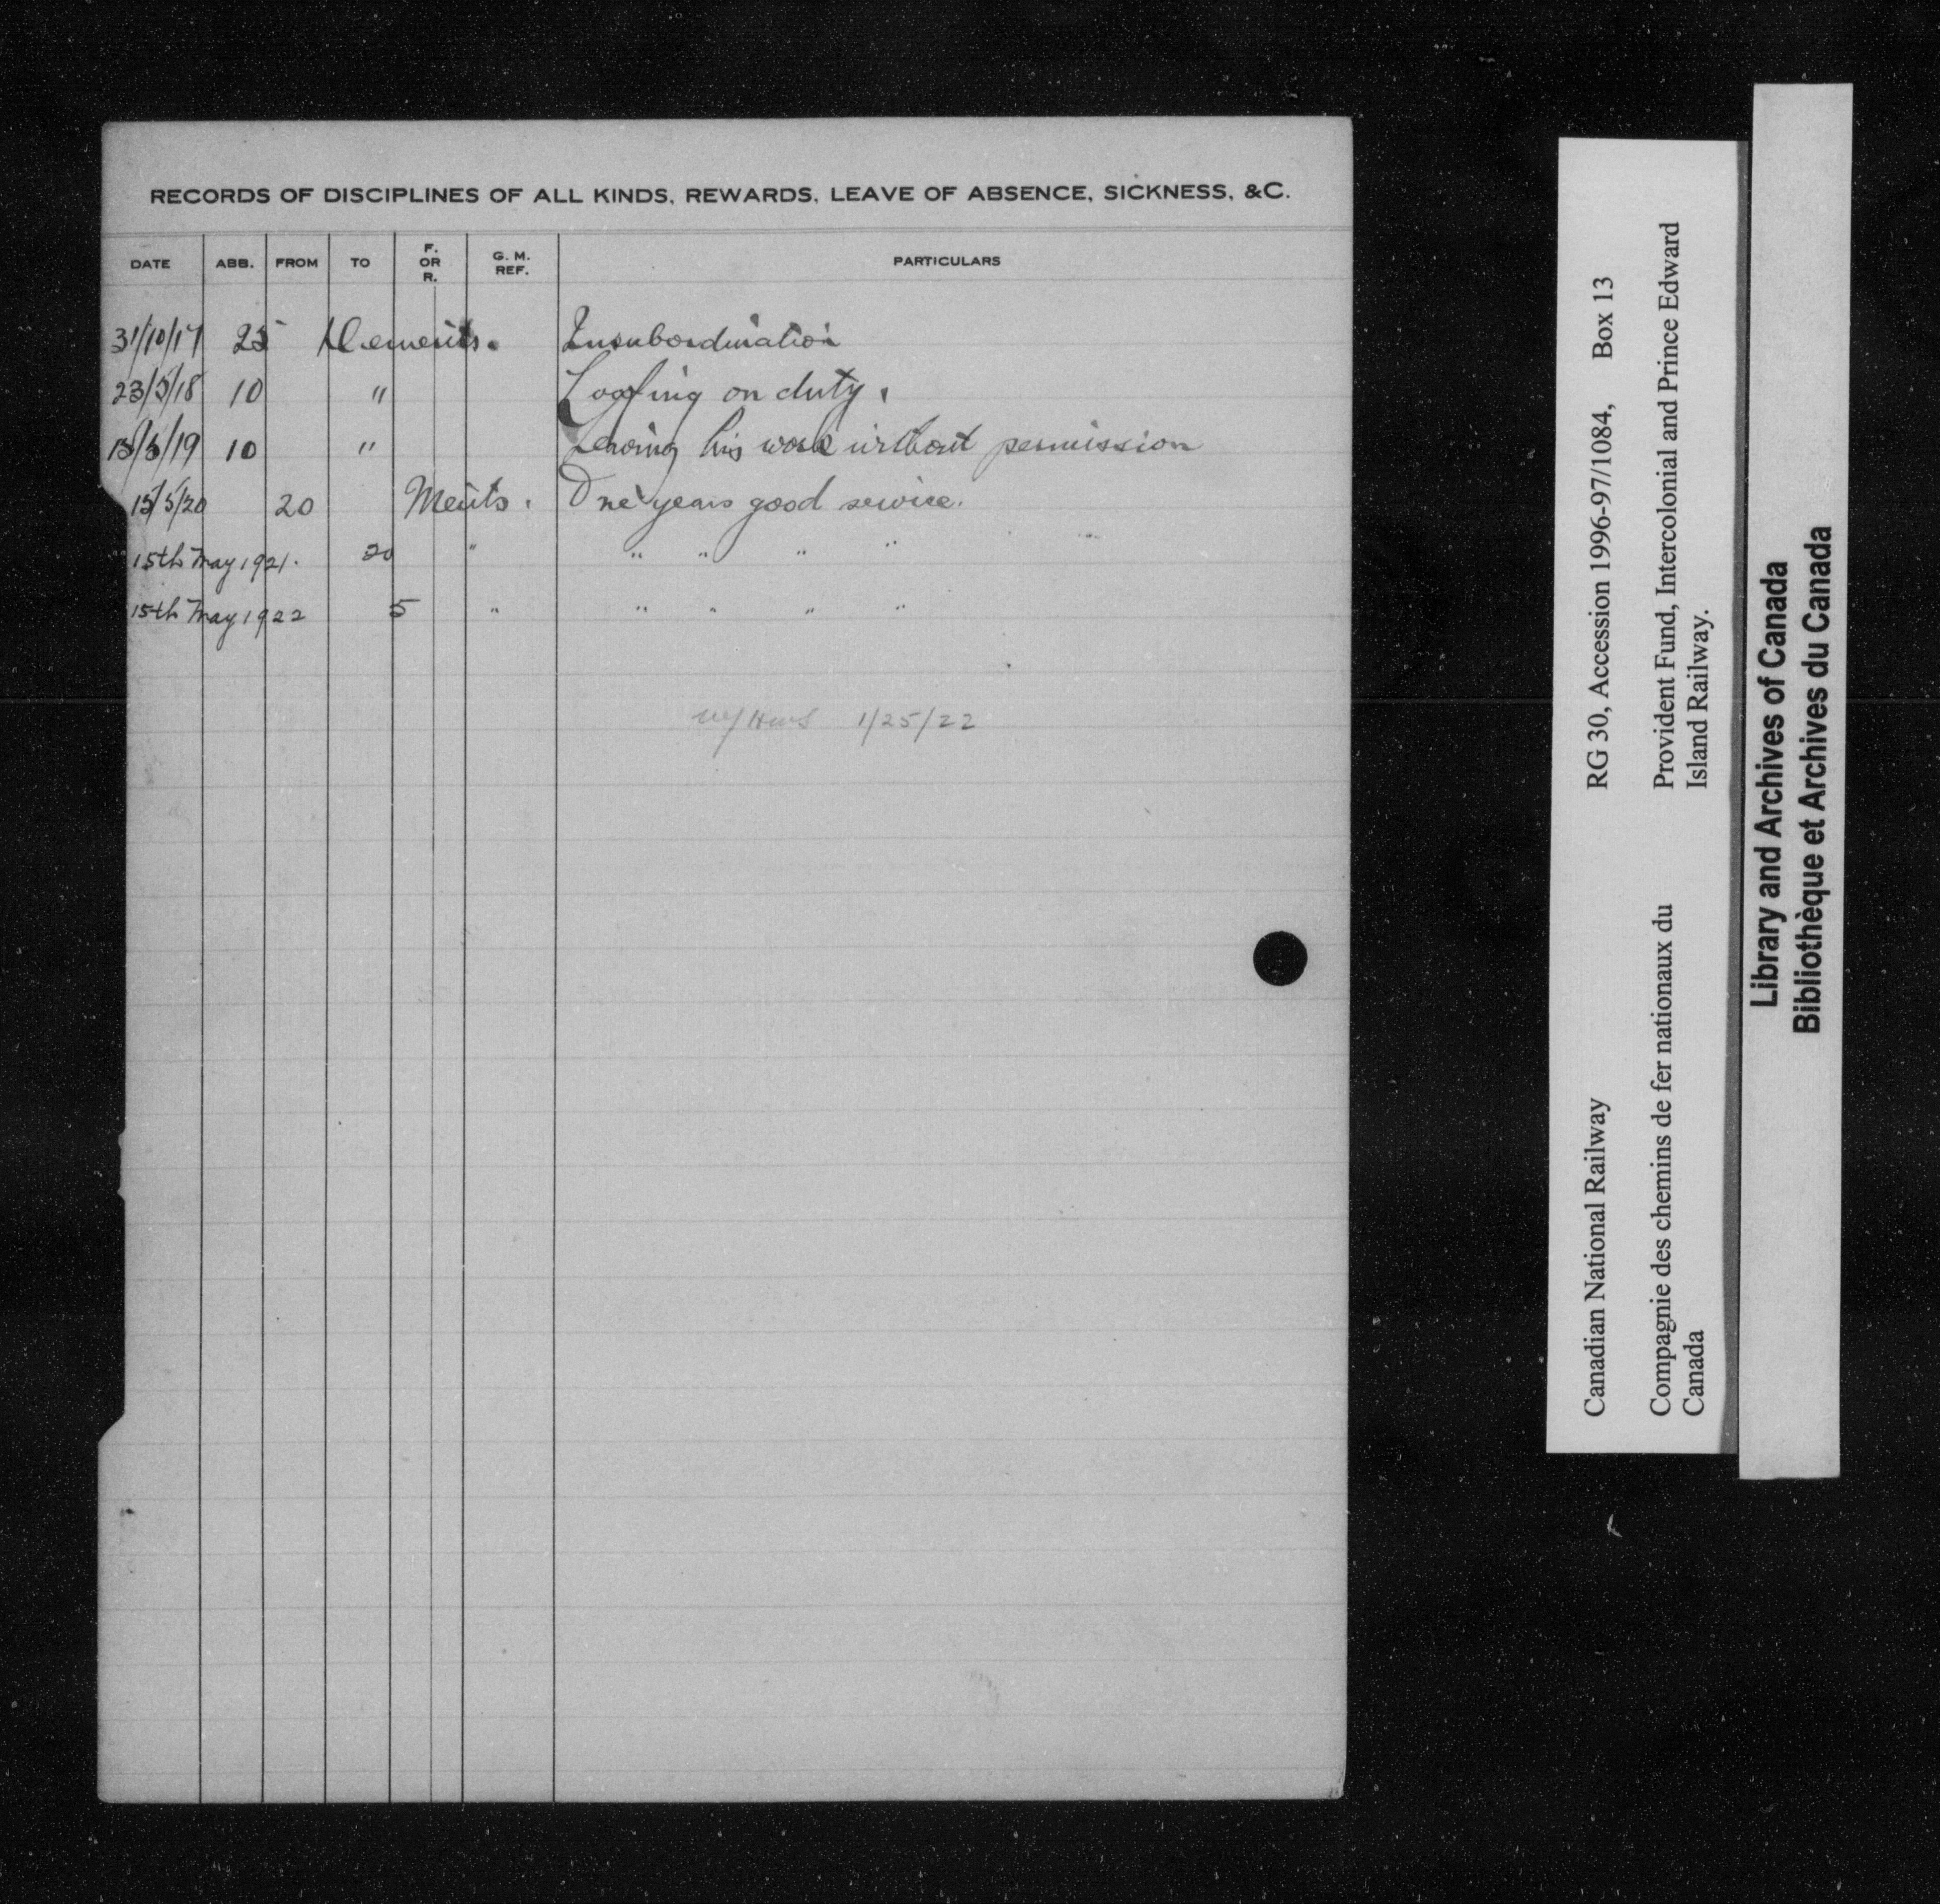 RECORDS OF DISCIPLINES OF ALL KINDS, REWARDS, LEAVE OF ABSENCE, SICKNESS, &C.
DATE ABB. FROM TO F. OR R. G. M. REF. PARTICULARS
31/10/17 25 Demerits. Insubordination
23/5/18 10 " Loafing on duty.
15/5/19 10 " Leaving his work without permission
15/5/20 20 Merits. One years good service.
15th May 1921. 20 " " " " "
15th May 1922 5 " " " " "
1/25/22
Canadian National Railway RG 30, Accession 1996-97/1084, Box 13
Compagnie des chemins de fer nationaux du Provident Fund, Intercolonial and Prince Edward
Canada Island Railway.
Library and Archives of Canada
Bibliothèque et Archives du Canada